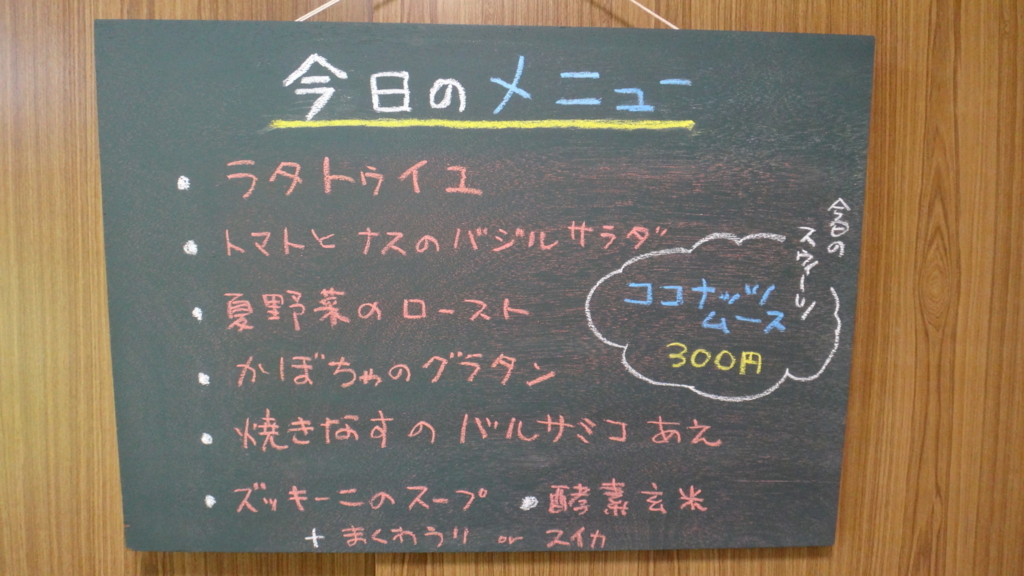 今日のメニュー
・ラタトゥイユ
・トマトとナスのバジルサラダ
・夏野菜のロースト
・かぼちゃのグラタン
・焼きなすのバルサミコあえ
・ズッキーニのスープ ・酵素玄米
+ まくわうり or スイカ
今日の
スウィーツ
ココナッツ
ムース
300円